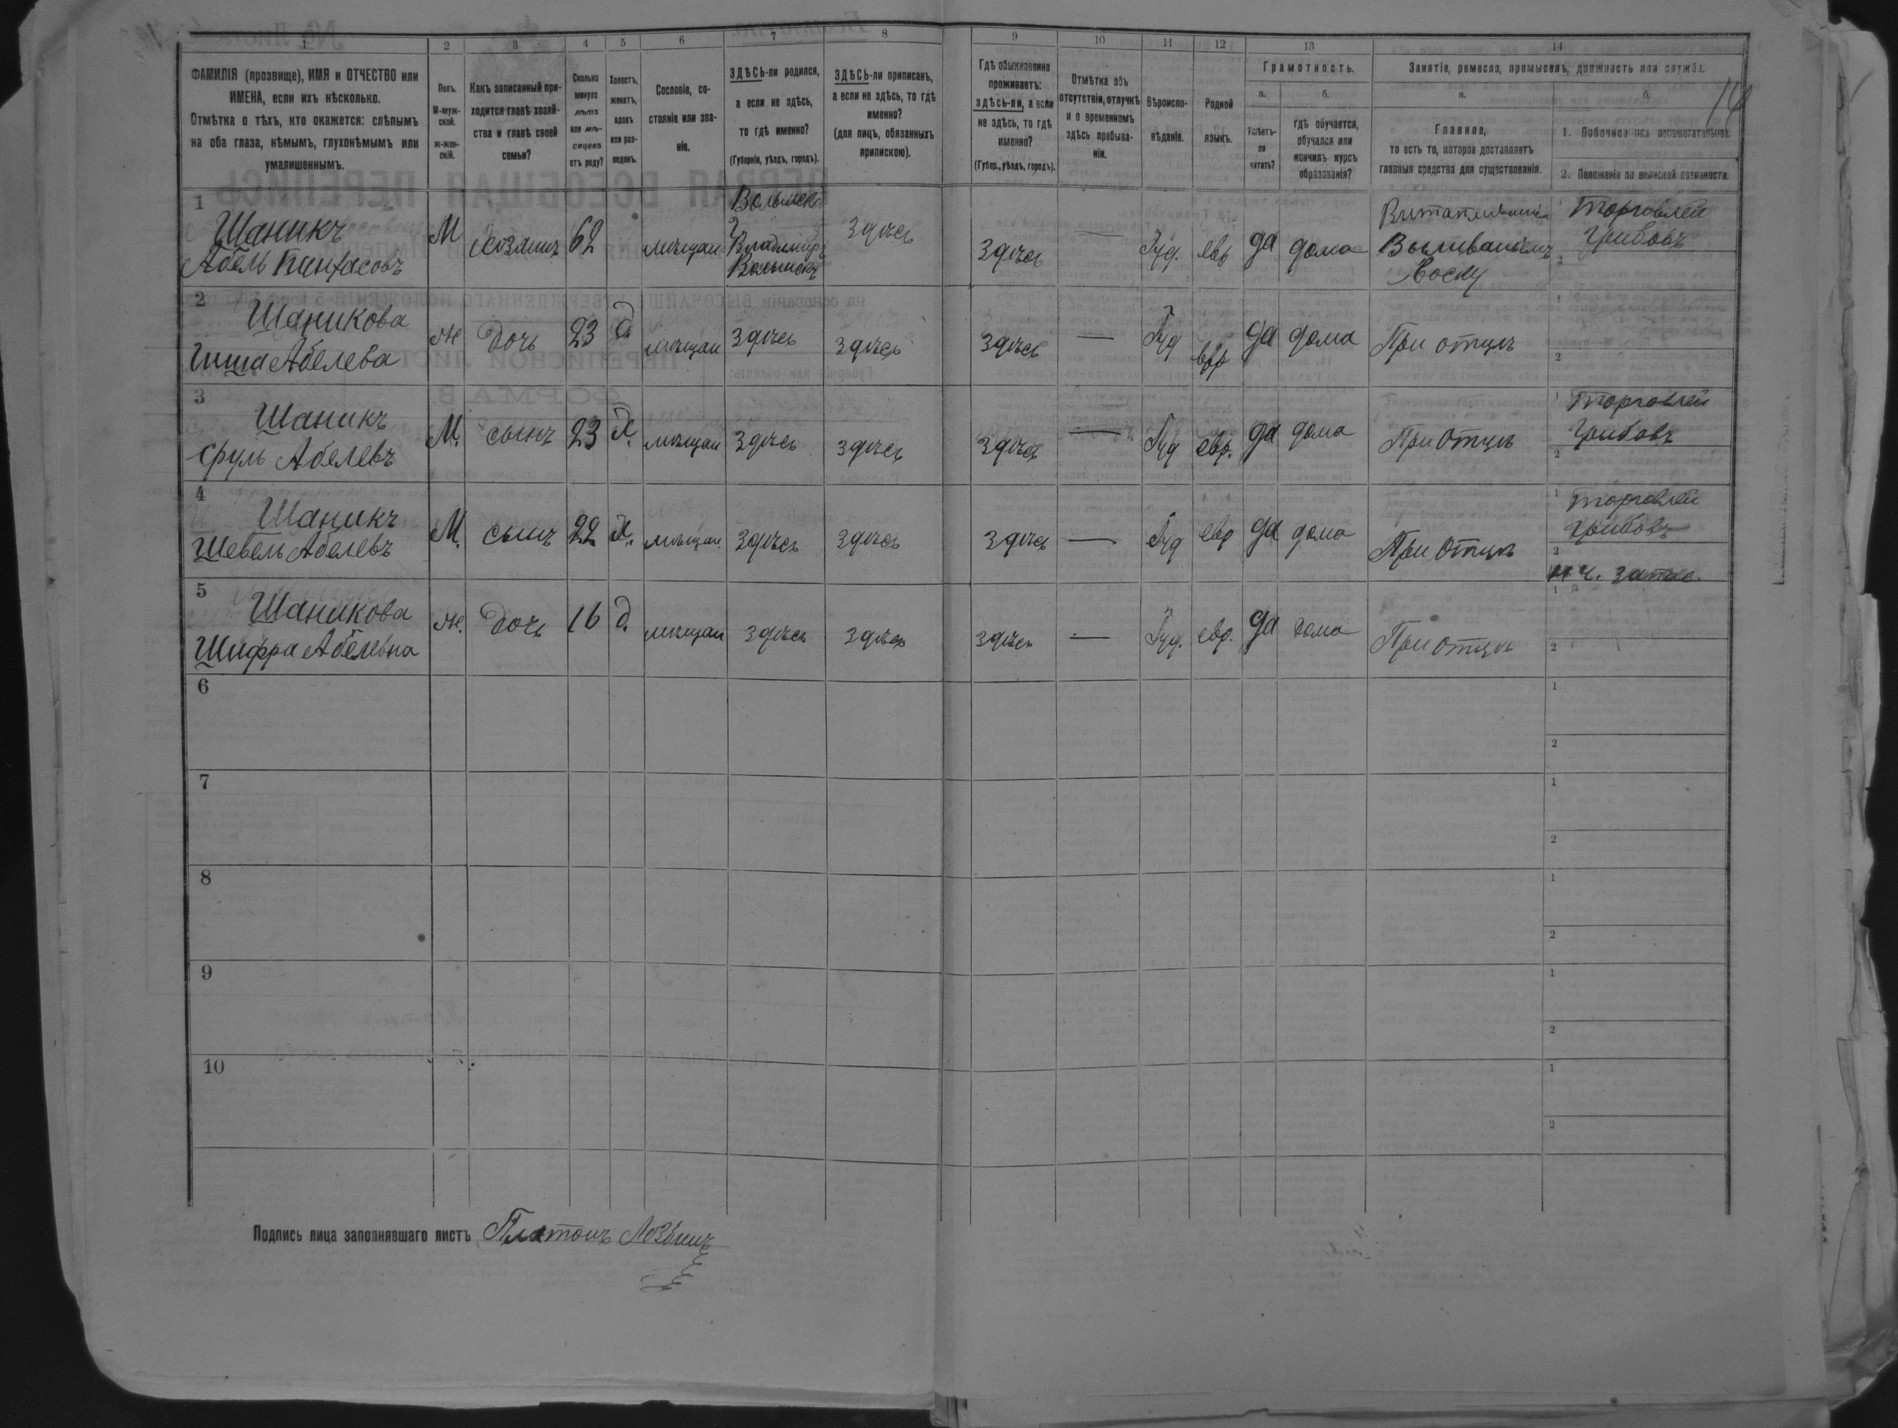 1 2 3 4 5 6 7 8 9 10 11 12 13 14
ФАМИЛІЯ (прозвище), ИМЯ и ОТЧЕСТВО или
ИМЕНА, если ихъ нѣсколько.
Отмѣтка о тѣхъ, кто окажется: слѣпымъ
на оба глаза, нѣмымъ, глухонѣмымъ или
умалишеннымъ.
Полъ.
М-муж-
ской.
ж-жен-
скій.
Какъ записанный при-
ходится главѣ хозяй-
ства и главѣ своей
семьи?
Сколько
минуло
лѣтъ
или мѣ-
сяцевъ
отъ роду?
Холостъ,
женатъ,
вдовъ
или раз-
веденъ.
Сословіе, со-
стояніе или зва-
ніе.
ЗДѢСЬ-ли родился,
а если не здѣсь,
то гдѣ именно?
(Губернія, уѣздъ, городъ).
ЗДѢСЬ-ли приписанъ,
а если не здѣсь, то гдѣ
именно?
(для лицъ, обязанныхъ
припискою).
Гдѣ обыкновенно
проживаетъ:
здѣсь-ли, а если
не здѣсь, то гдѣ
именно?
(Губер., уѣздъ, городъ).
Отмѣтка объ
отсутствіи, отлучкѣ
и о временномъ
здѣсь пребыва-
ніи.
Вѣроиспо-
вѣданіе.
Родной
языкъ.
Грамотность.
а.
Умѣетъ-
ли
читать?
б.
гдѣ обучается,
обучался или
кончилъ курсъ
образованія?
Занятіе, ремесло, промыселъ, должность или служба.
а.
Главное,
то есть то, которое доставляетъ
главныя средства для существованія.
б.
1. Побочное или вспомогательное.
2. Положеніе по воинской повинности.
1
Шаникъ
Абель Пинхасовъ
М Хозяинъ 62 мѣщан
Волынск.
г.
Владимиръ
Волынскъ
здѣсь здѣсь Іуд. евр да дома
Воску
Торговлей
грибовъ
2
Шаникова
Абелева
ж дочь 23 д мѣщан здѣсь здѣсь здѣсь — Іуд евр да дома При отцѣ
3
Шаникъ
Сруль Абелевъ
М. сынъ 23 х. мѣщан здѣсь здѣсь здѣсь — Іуд евр. да дома При отцѣ
Торговлей
грибовъ
4
Шаникъ
Шевель Абелевъ
М. сынъ 22 х. мѣщан здѣсь здѣсь здѣсь — Іуд евр да дома При отцѣ
Торговлей
грибовъ
5
Шаникова
Шифра Абелевна
ж. дочь 16 д. мѣщан здѣсь здѣсь здѣсь — Іуд. евр. да дома При отцѣ
6
7
8
9
10
Подпись лица заполнявшаго листъ Платонъ